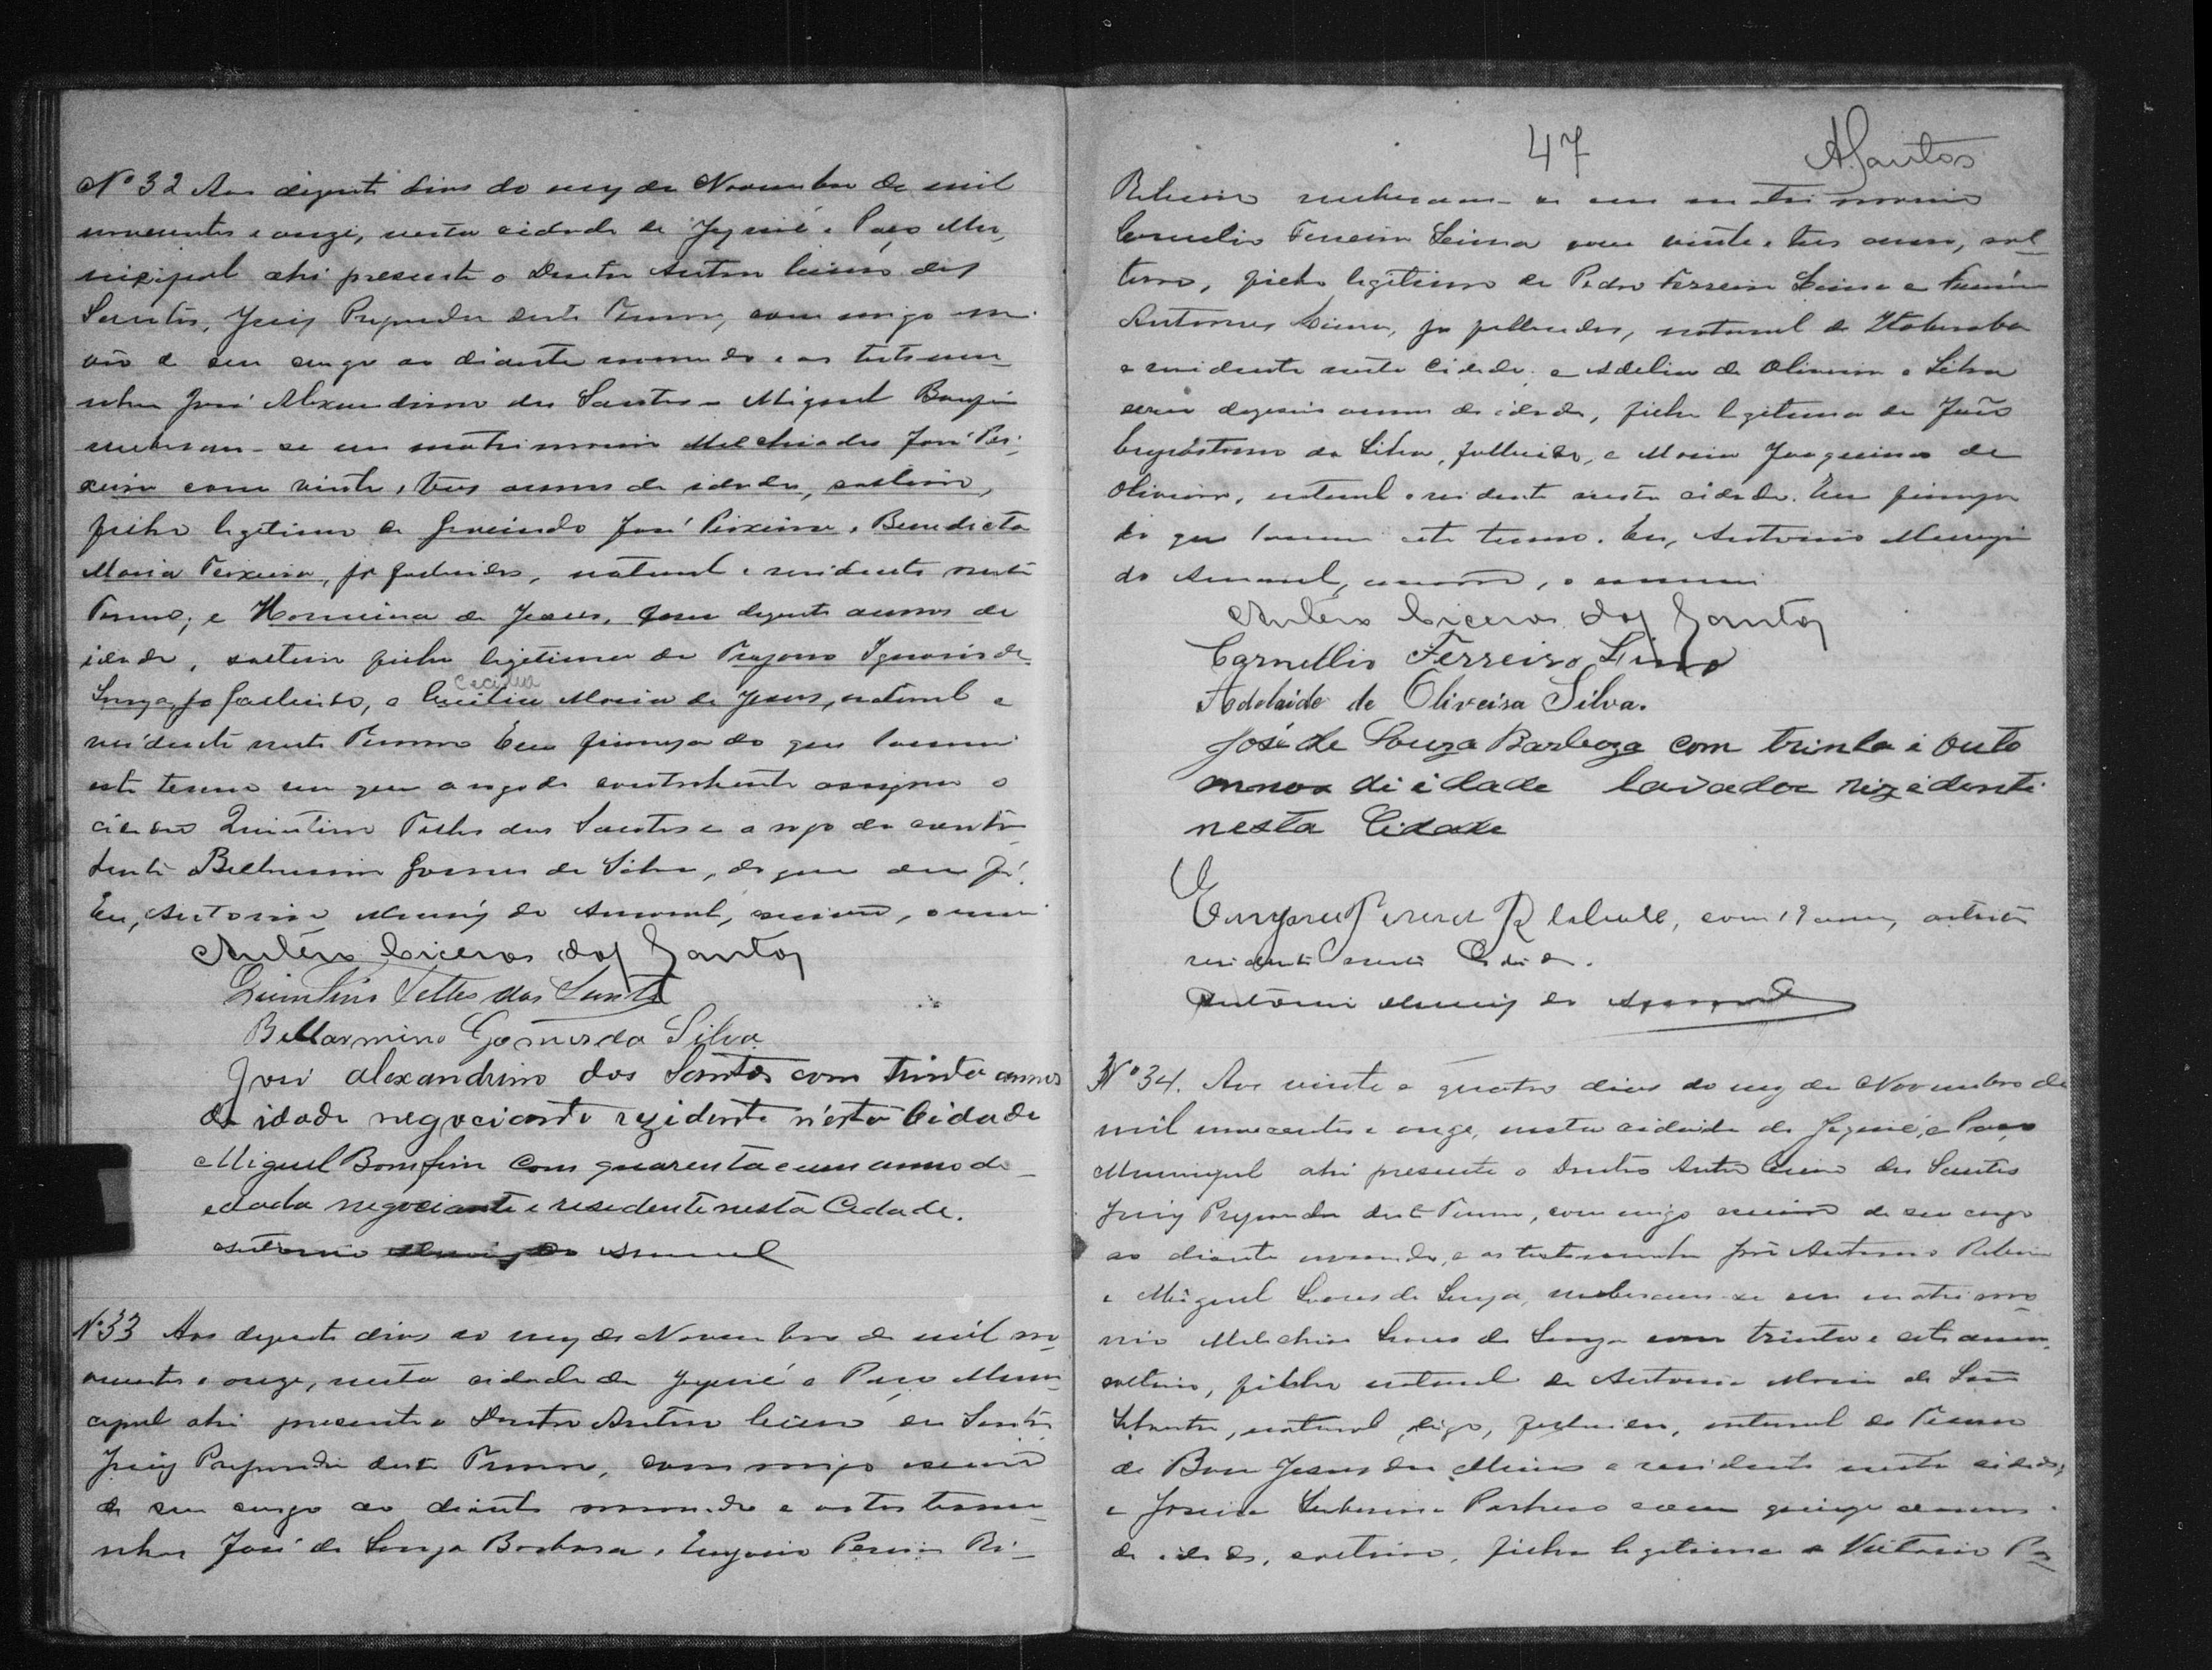 Nº 32 Aos dezenti dias do mez de Novembro de mil
novecentos e onze, nesta cidade de Jequié e Paço Mu-
nicipal ahi presente o Doutor Antero Cicero dos
Santos, Juiz Preparador deste Termo, commigo escri-
vão de seu cargo ao diante nomeado e as testemu-
nhas José Alexandrino dos Santos e Miguel Bomfim
receberam-se em matrimonio Melchiades José Tei-
xeira com vinte e tres annos de idade, solteiro,
filho legitimo de Gracindo José Teixeira e Benedicta
Maria Teixeira, já fallecidos, natural e residente neste
Termo; e Hormina de Jesus, com dezenti annos de
idade, solteira filha legitima de Trajano Ignacio de
Souza, já fallecido, e Cecilia Maria de Jesus, natural e
Cecilia
residente neste Termo Em firmeza do que lavrei
este termo em que a rogo do contrahente assigna o
cidadão Quintino Telles dos Santos e a rogo da contra-
hente Bellarmino Gomes da Silva, do que dou fé.
Eu, Antonio Muniz do Amaral, escrivão, o escrevi
Antero Cicero dos Santos
Quintino Telles dos Santos
Bellarmino Gomes da Silva
José Alexandrino dos Santos com trinta annos
de idade negociante rezidente nésta Cidade
Miguel Bomfim com quarenta e um anno de
edade negociante e residente nesta Cidade.
Antonio Muniz do Amaral
Nº 33 Aos dezenti dias do mez de Novembro de mil no-
vecentos e onze, nesta cidade de Jequié e Paço Muni-
cipal ahi presente o Doutor Antero Cicero dos Santos
Juiz Preparador deste Termo, commigo escrivão
de seu cargo ao diante nomeado e as testemu-
nhas José de Souza Barbosa e Eugenio Pereira Ri-
47 ASantos
Ribeiro receberam-se em matrimonio
Cornelio Ferreira Lima com vinte e tres annos, sol-
teiro, filho legitimo de Pedro Ferreira Lima e
Antunes Lima, já fallecidos, natural de Itaberaba
e residente nesta Cidade; e Adelia de Oliveira e Silva
com dezeseis annos de idade, filha legitima de João
Crysostomo da Silva, fallecido, e Maria Joaquina de
Oliveira, natural e residente nesta cidade. Em firmeza
do que lavrei este termo. Eu, Antonio Muniz
do Amaral, escrivão, o escrevi
Antero Cicero dos Santos
Cornellio Ferreira Lima
Adelaide de Oliveira Silva.
José de Souza Barboza com trinta i outo
annos di idade lavador rizidenti
nesta Cidade
Pereira com 19 annos, artista
residente nesta Cidade.
Antonio Muniz do Amaral
Nº 34. Aos vinte e quatro dias do mez de Novembro de
mil novecentos e onze, nesta cidade de Jequié, e Paço
Municipal ahi presente o Doutor Antero Cicero dos Santos
Juiz Preparador deste Termo, commigo escrivão de seu cargo
ao diante nomeado, e as testemunhas José Antonio Ribeiro
e Miguel Soares de Souza, receberam-se em matrimo-
nio Melchior Soares de Souza com trinta e sete annos,
solteiro, filho natural de Antonia Maria de São
natural, digo, fallecida, natural do Termo
de Bom Jesus dos Meiras e residente nesta cidade;
e Pacheco com quinze annos
de idade, solteira, filha legitima de Victorio Pa-